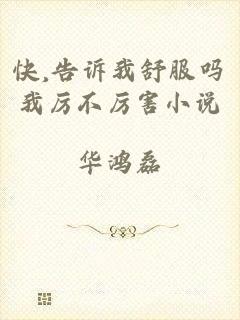 快,告诉我舒服吗
我厉不厉害小说
华鸿磊